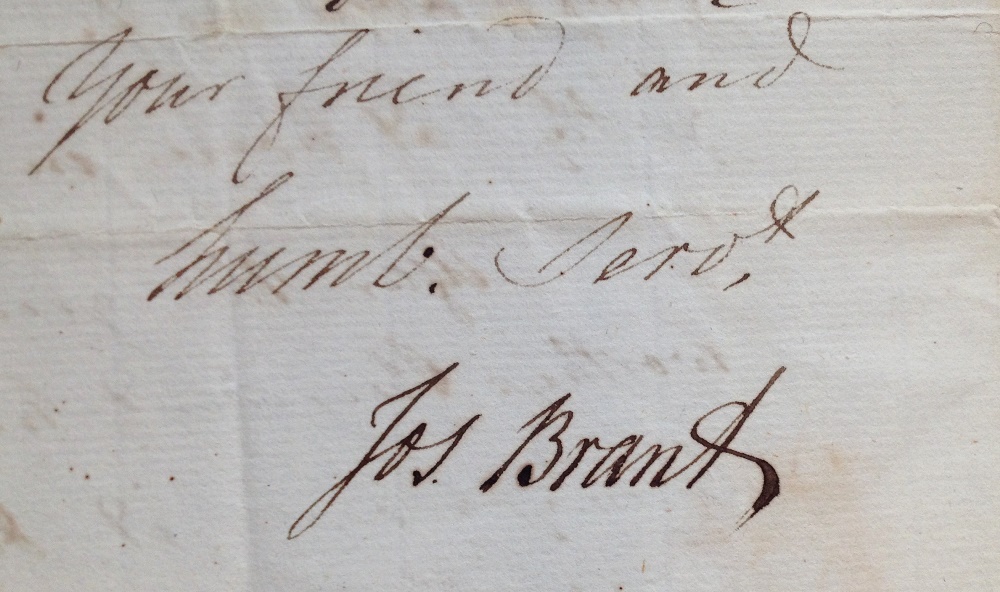 Your friend and
humb. Servt,
Jos. Brant